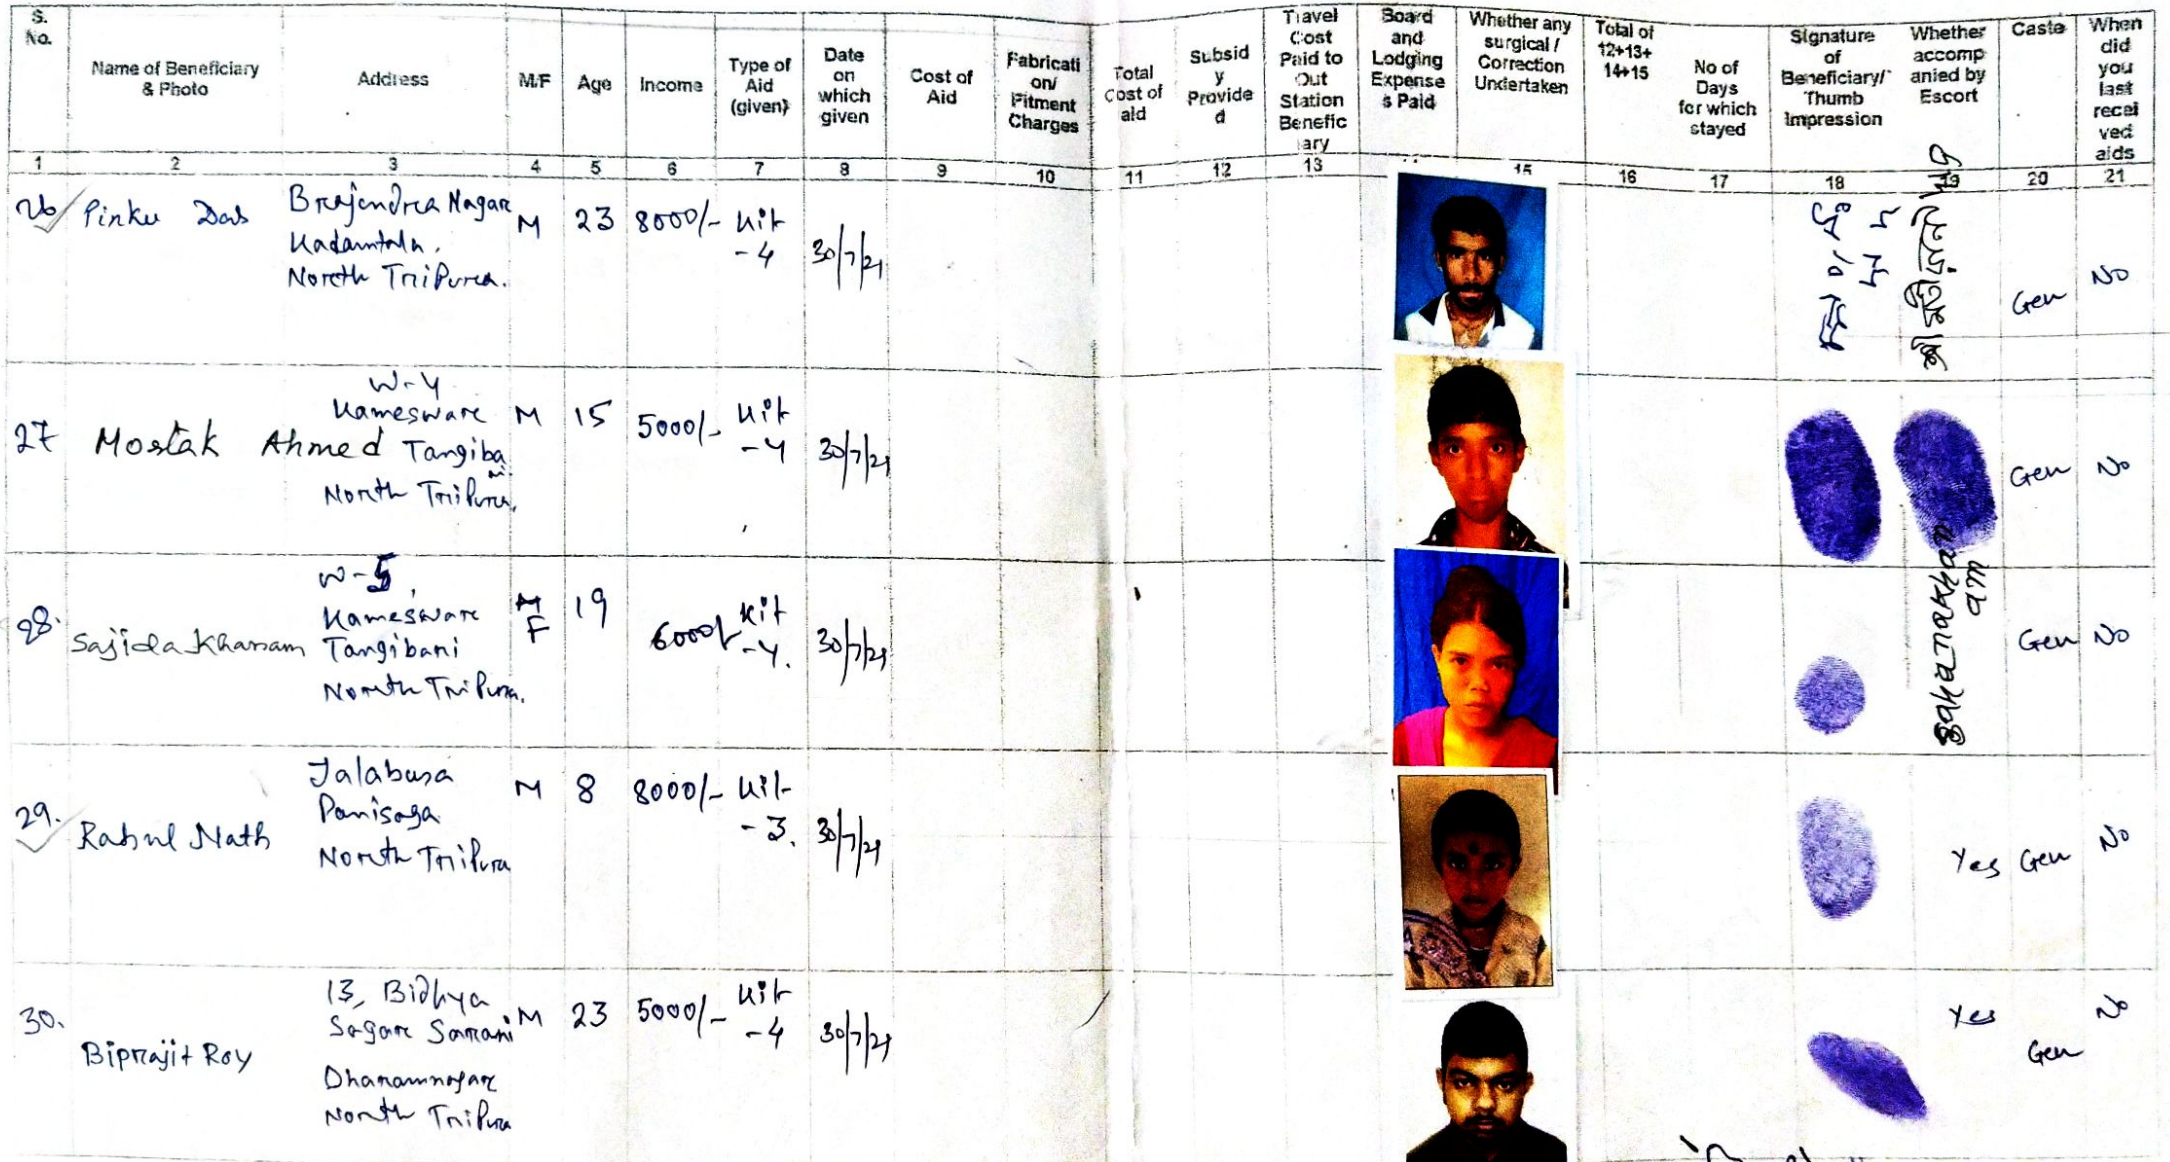 S. No.
Name of Beneficiary & Photo
Address
M/F
Age
Income
Type of Aid (given)
Date on which given
Cost of Aid
Fabricati on/ Fitment Charges
Total Cost of aid
Subsid y Provide d
Travel Cost Paid to Out Station Benefic iary
Board and Lodging Expense s Paid
Whether any surgical / Correction Undertaken
Total of 12+13+ 14+15
No of Days for which stayed
Signature of Beneficiary/ Thumb Impression
Whether accomp anied by Escort
Caste
When did you last recei ved aids
1 2 3 4 5 6 7 8 9 10 11 12 13 15 16 17 18 19 20 21
26 Pinku Das
Brajendra Nagar
Kadamtala,
North Tripura.
M 23 8000/- Kit
-4
30/7/21
Gen No
27 Mostak Ahmed
W-4
Kameswar
Tangiba
ri.
North Tripura,
M 15 5000/- Kit
-4
30/7/21
Gen No
28. Sajida Khanam
W-5,
Kameswar
Tangibari
North Tripura.
F 19 6000/- Kit
-4.
30/7/21
Gen No
29. Rahul Nath
Jalabasa
Panisaga
North Tripura
M 8 8000/- Kit
-3.
30/7/21
Yes Gen No
30. Biprajit Roy
13, Bidhya
Sagar Sarani
Dharamnagar
North Tripura
M 23 5000/- Kit
-4
30/7/21
Yes Gen No